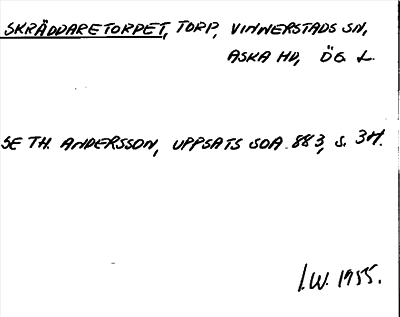 SKRÄDDARETORPET, TORP, VINNERSTADS SN,
ASKA HD, ÖG. L.
SE TH. ANDERSSON, UPPSATS SOA 883, S. 34.
I.W. 1955.